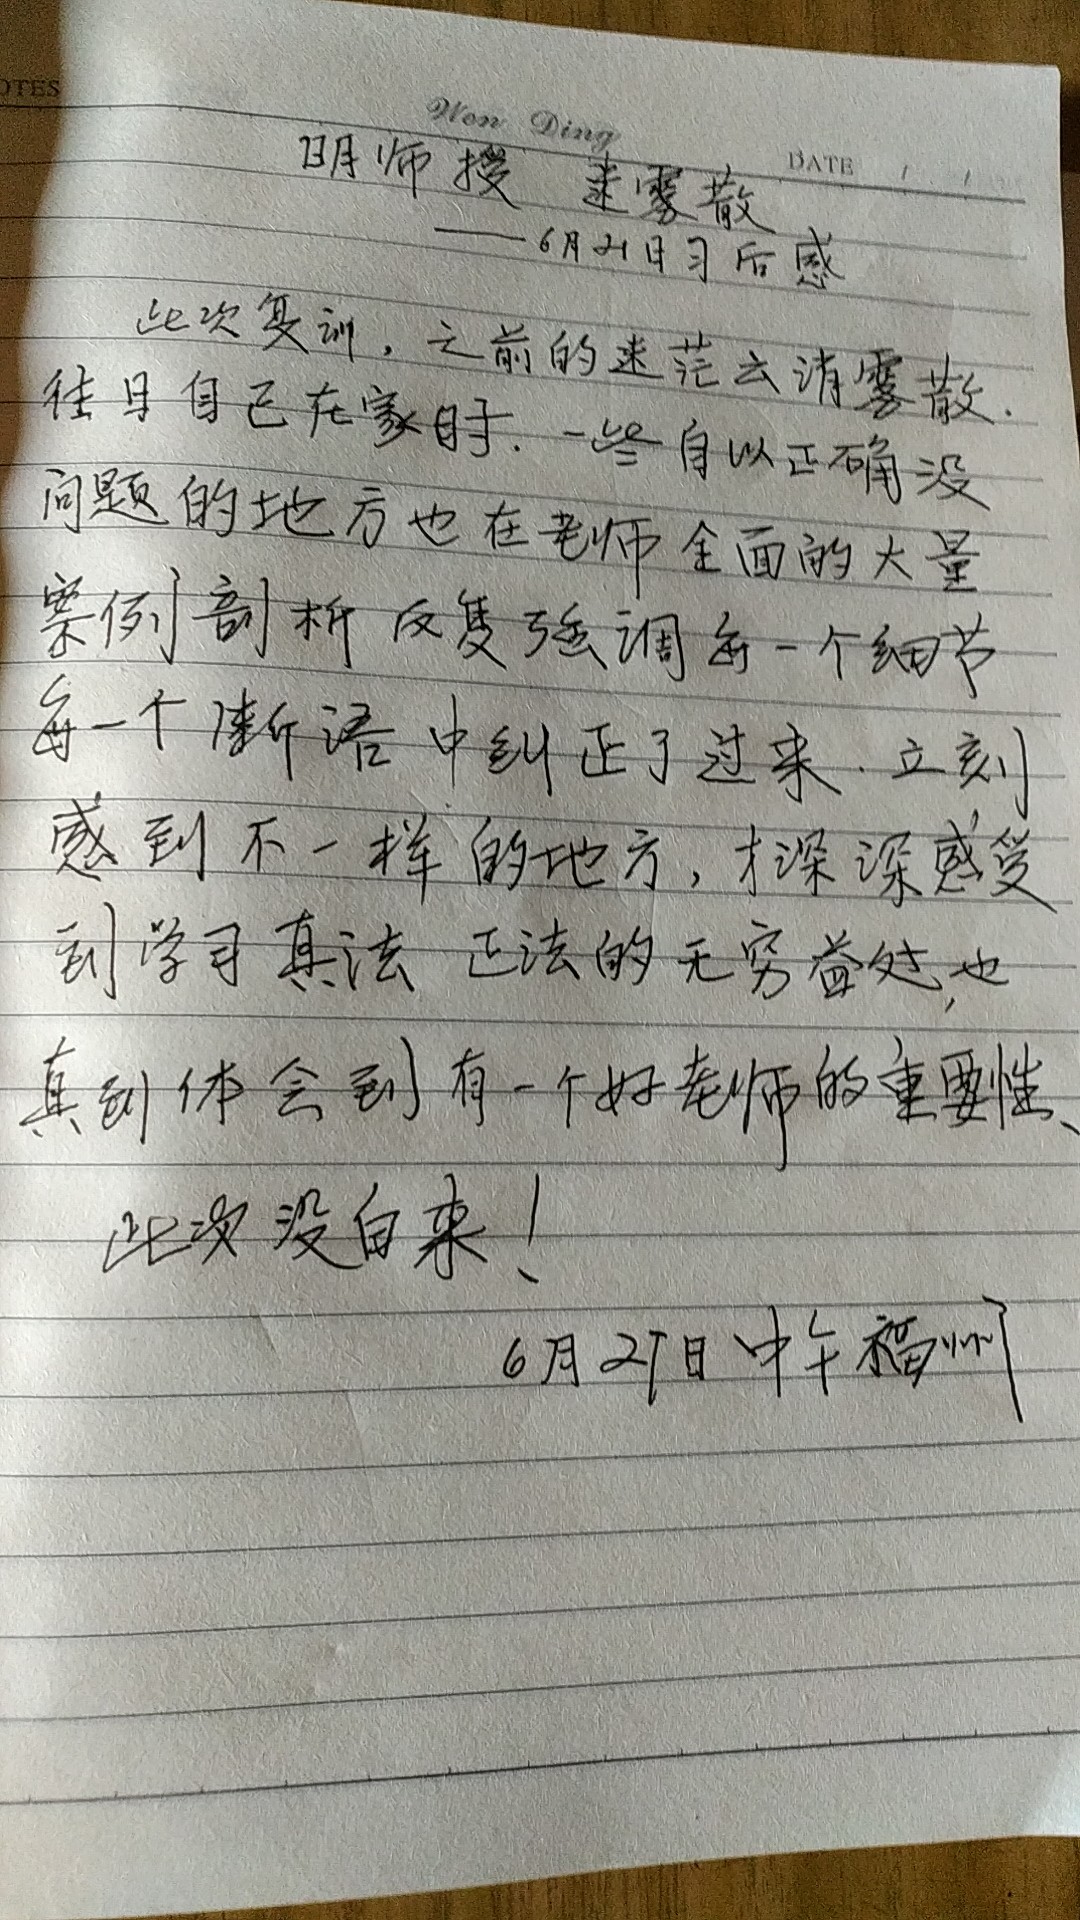 OTES
Wen Ding
DATE / /
明师授 迷雾散
——6月21日习后感
此次复训,之前的迷茫云消雾散.
往日自己在家时.一些自以正确没
问题的地方也在老师全面的大量
案例剖析 反复强调每一个细节
每一个断语中纠正了过来.立刻
感到不一样的地方,才深深感受
到学习真法 正法的无穷益处,也
真到体会到有一个好老师的重要性、
此次没白来!
6月21日中午福州